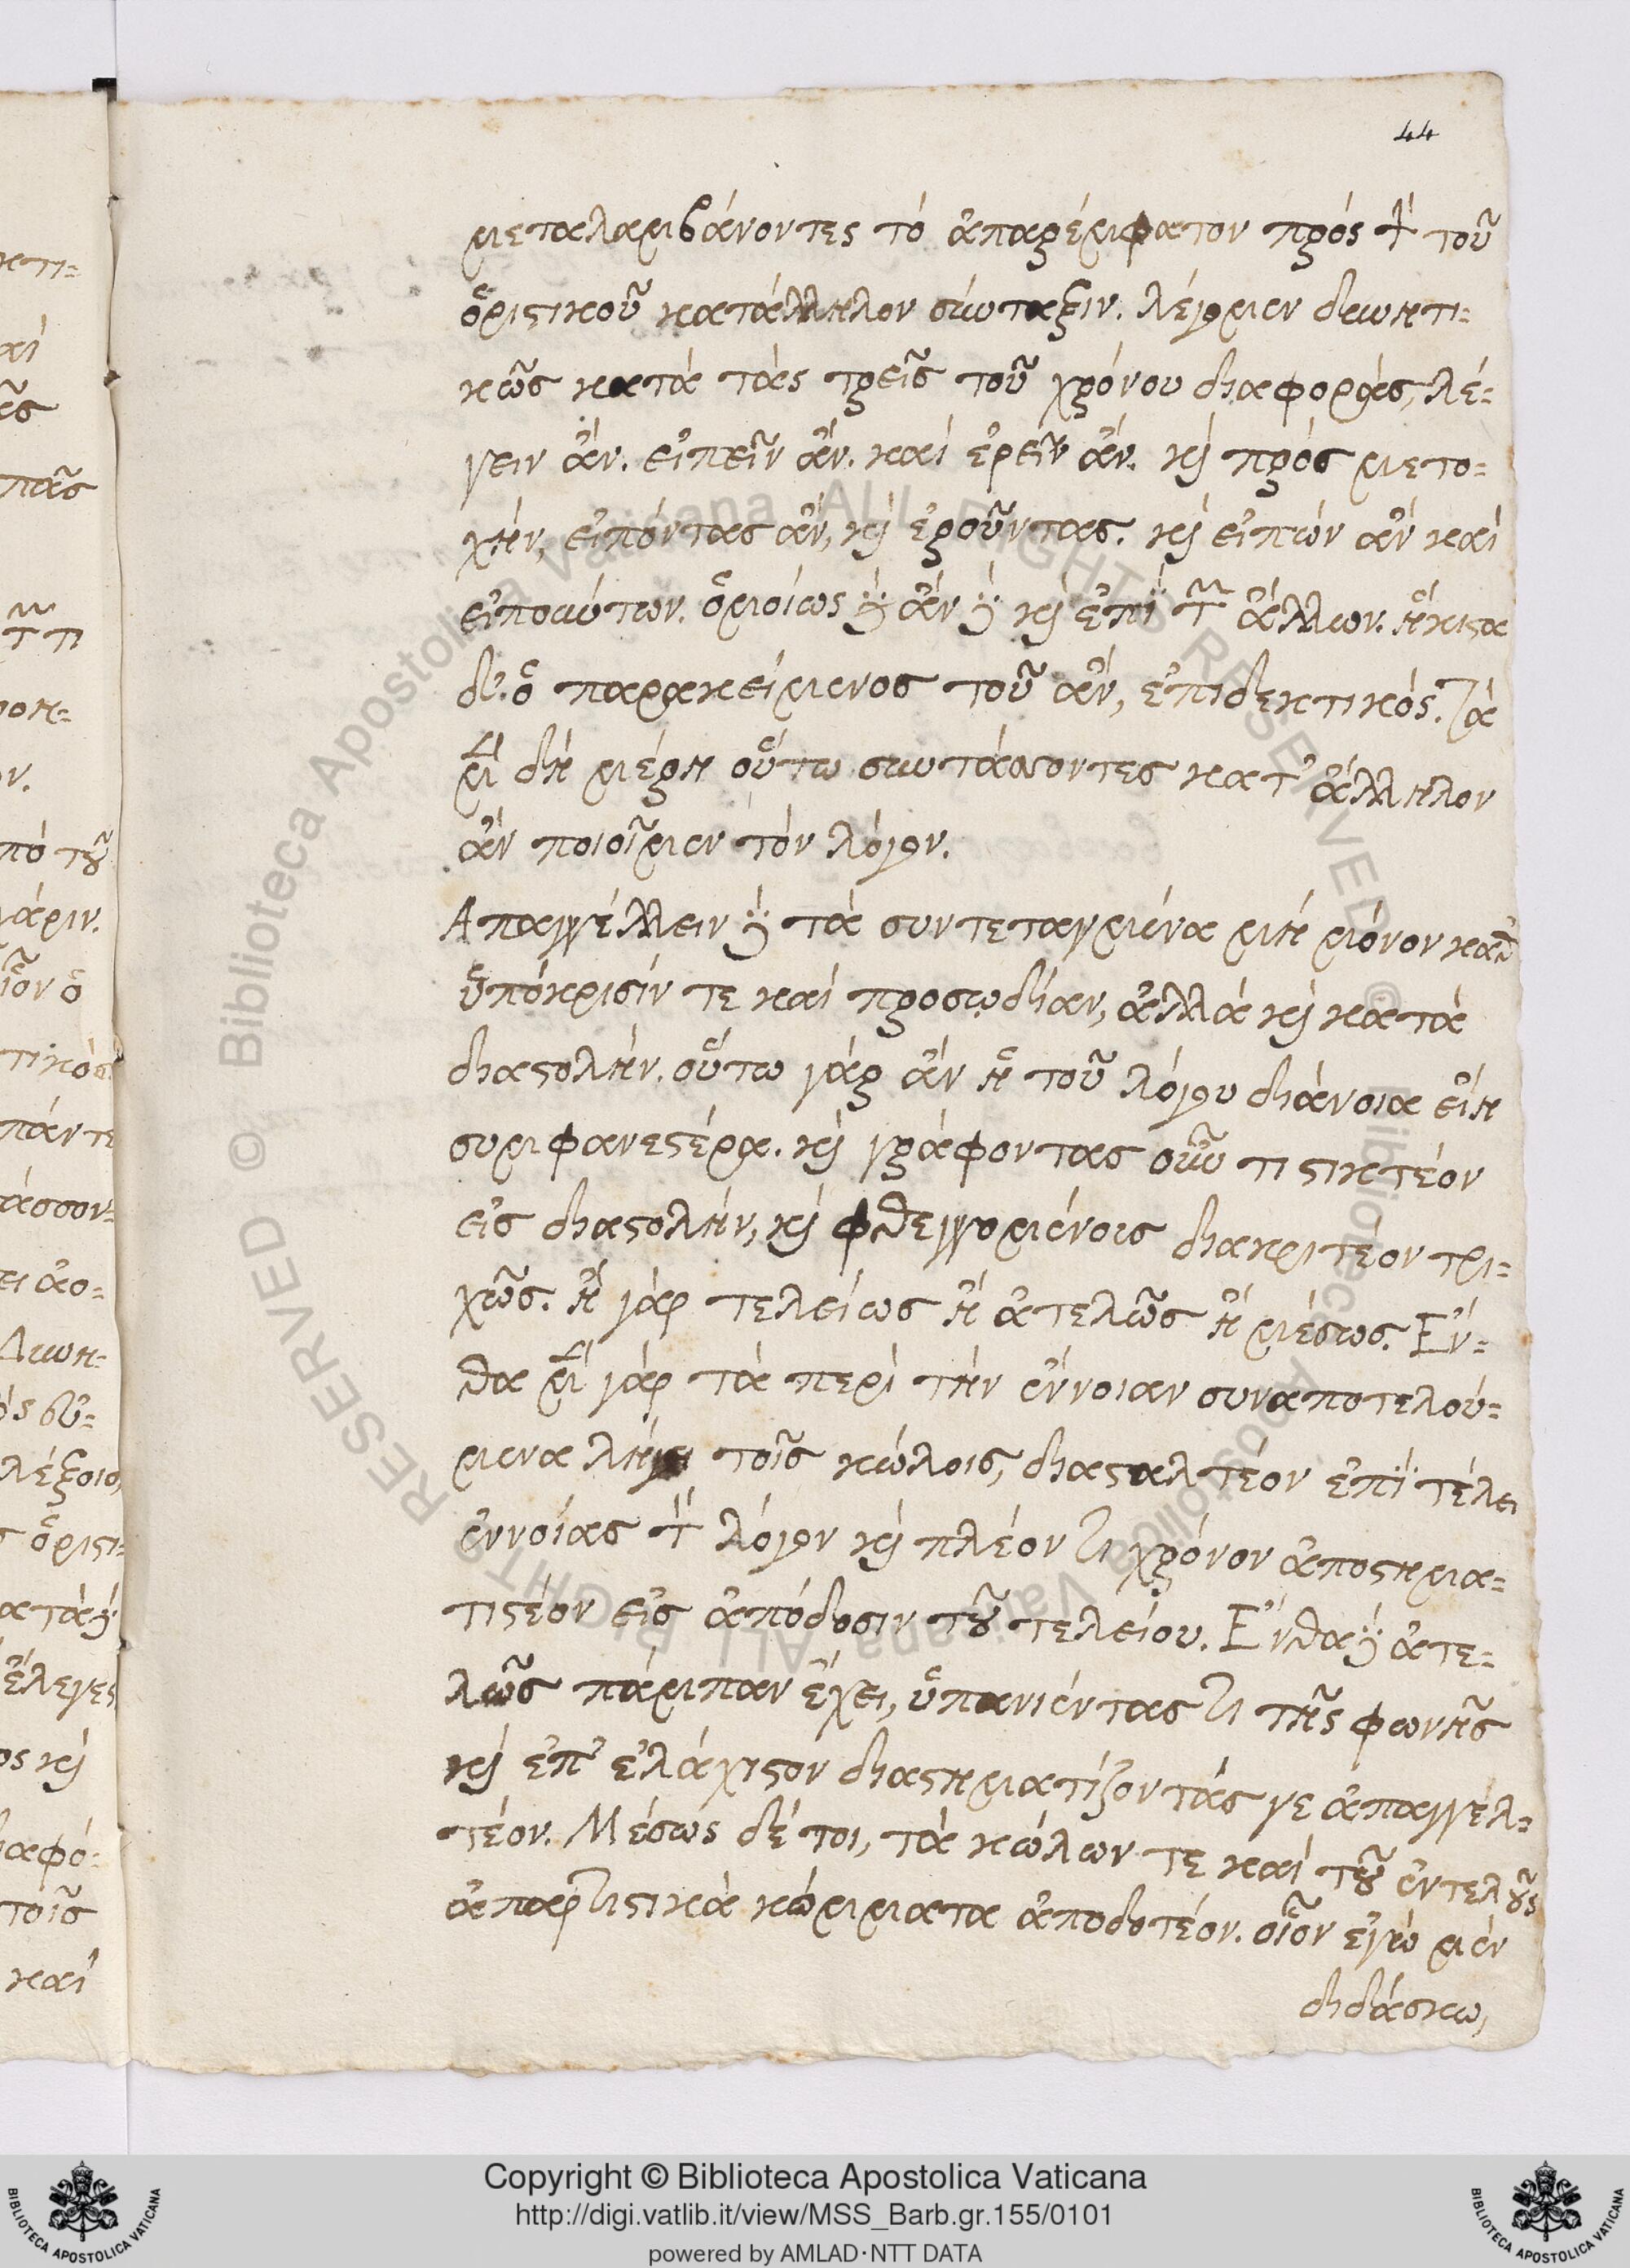 44
μεταλαμβάνοντες τὸ ἀπαρέμφατον πρὸς τὴν τοῦ
ὁριστικοῦ κατάλληλον σύνταξιν. λέγομεν δυνητι-
κῶς κατὰ τὰς τρεῖς τοῦ χρόνου διαφοράς, λέ-
γειν ἄν. εἰπεῖν ἄν. καὶ ἐρεῖν ἄν. καὶ πρὸς μετο-
χήν, εἰπόντας ἄν, καὶ ἐροῦντας. καὶ εἰπών ἄν καὶ
εἰπούντων. ὁμοίως δὲ ἄν δὲ καὶ ἐπὶ τῶν ἄλλων. ἥκιστα
δ' ὁ παρακείμενος τοῦ ἄν, ἐπιδεκτικός. τὰ
μὲν δὴ μέρη οὕτω συντάττοντες κατ' ἄλληλον
ἄν ποιοῖμεν τὸν λόγον.
Απαγγέλλειν δὲ τὰ συντεταγμένα μὴ μόνον καθ'
ὑπόκρισίν τε καὶ προσῳδίαν, ἀλλὰ καὶ κατὰ
διαστολήν. οὕτω γὰρ ἄν ἡ τοῦ λόγου διάνοια εἴη
συμφανεστέρα. καὶ γράφοντας οὖν τι στικτέον
εἰς διαστολήν, καὶ φθεγγομένοις διακριτέον τρι-
χῶς. ἢ γὰρ τελείως ἢ ἀτελῶς ἢ μέσως. Ἔν-
θα μὲν γὰρ τὰ περὶ τὴν ἔννοιαν συναποτελού-
μενα λήγει τοῖς κώλοις, διασταλτέον ἐπὶ τέλει
ἐννοίας τὸν λόγον καὶ πλέον τι χρόνον ἀποστημα-
τιστέον εἰς ἀπόδοσιν τοῦ τελείου. Ἔνθα δὲ ἀτε-
λῶς πάμπαν ἔχει, ὑπανιέντας τι τῆς φωνῆς
καὶ ἐπ' ἐλάχιστον διαστηματίζοντάς γε ἀπαγγελ-
τέον. Μέσως δέ τοι, τὰ κώλων τε καὶ τοῦ ἐντελοῦς
ἀπαρτιστικὰ κόμματα ἀποδοτέον. οἷον ἐγὼ μὲν
διδάσκω,
Copyright © Biblioteca Apostolica Vaticana
http://digi.vatlib.it/view/MSS_Barb.gr.155/0101
powered by AMLAD·NTT DATA